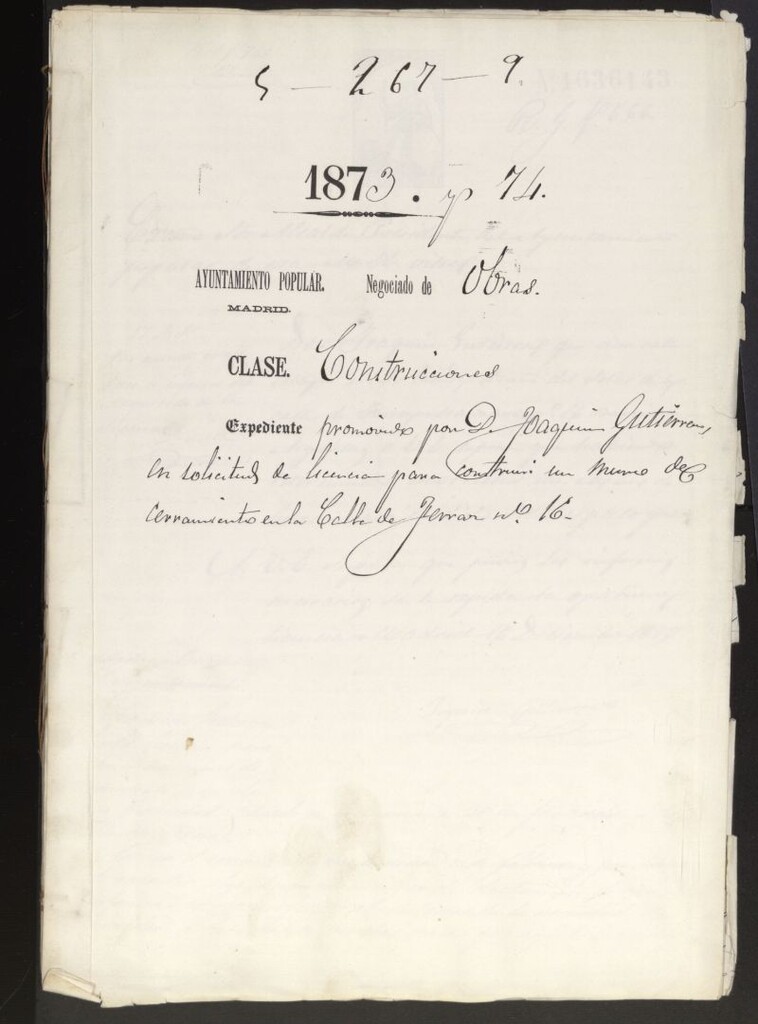 5 - 267 - 9.
1873. y 74.
AYUNTAMIENTO POPULAR. Negociado de Obras.
MADRID.
CLASE. Construcciones
Expediente promovido por D. Joaquin Gutierrez,
en solicitud de licencia para construir un muro de
cerramiento en la Calle de Ferraz nº 16-